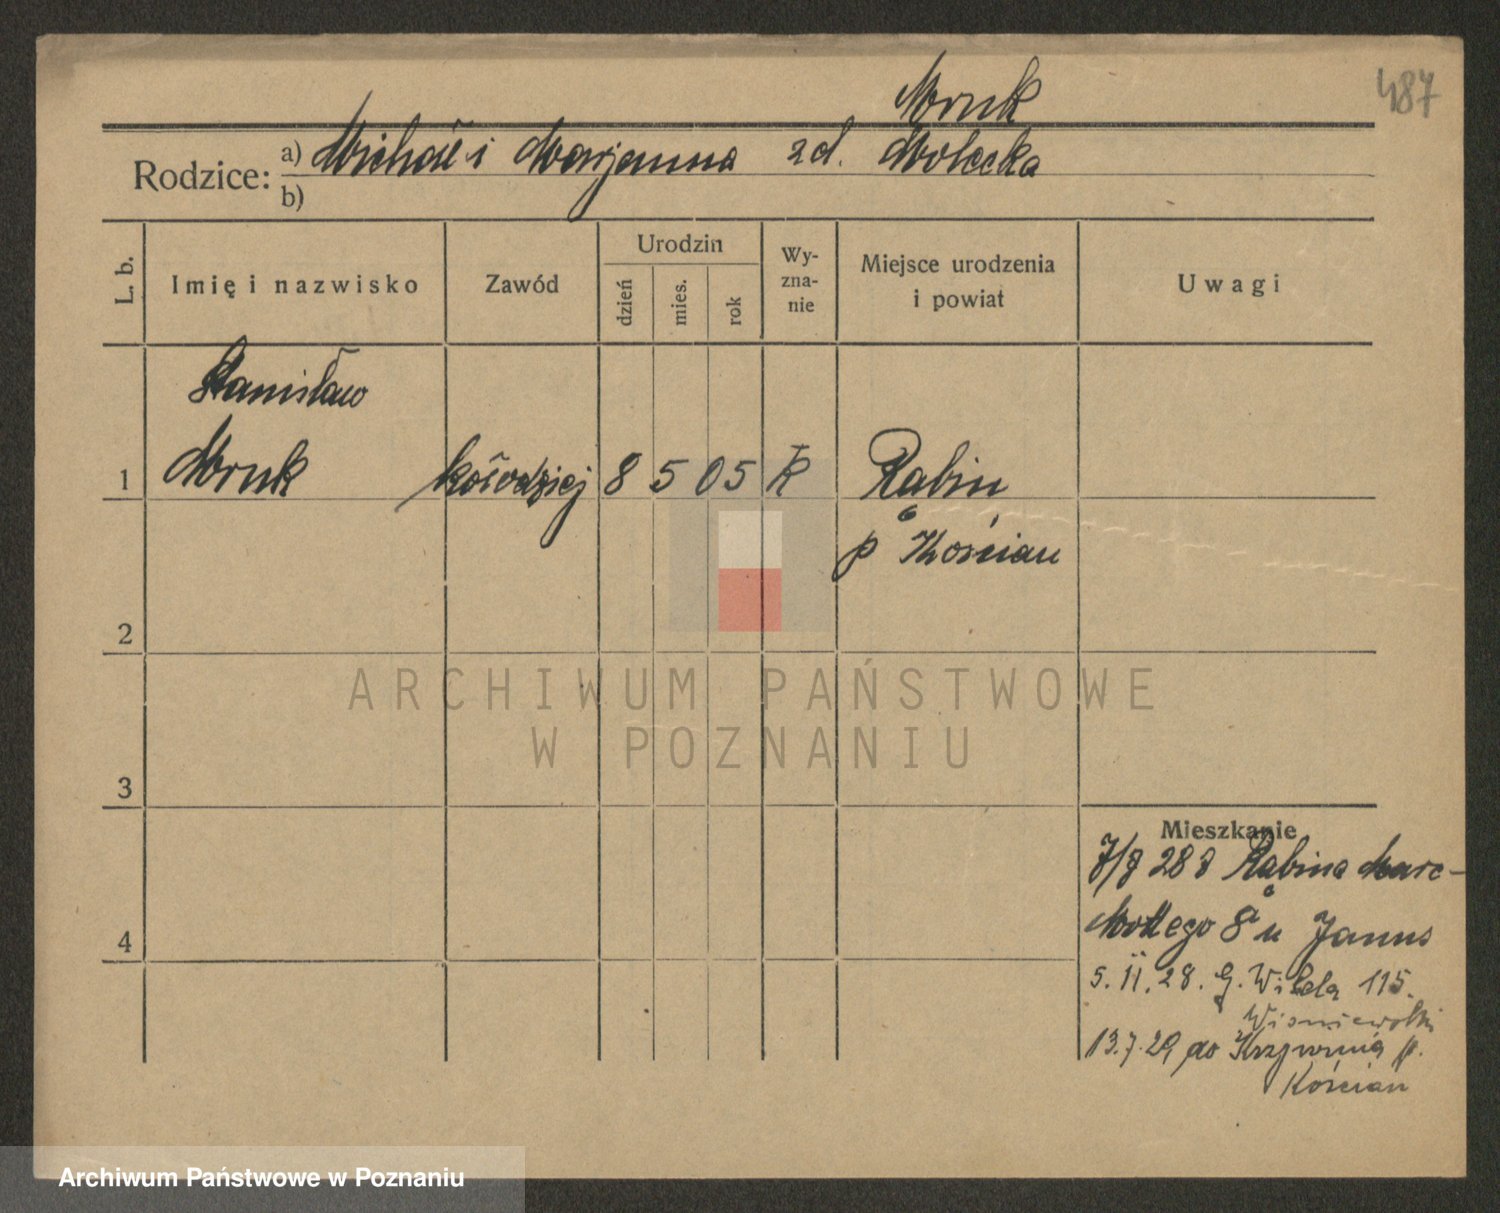 Mruk
487
Rodzice: a) Michał i Marjanna zd. Molecka
b)
L. b.
Imię i nazwisko
Zawód
Urodzin
dzień
mies.
rok
Wy-
zna-
nie
Miejsce urodzenia
i powiat
Uwagi
Stanisław
1 Mruk kołodziej 8 5 05 k Rąbin
p Kościan
2
3
4
Mieszkanie
28 Rąbina Marc-
Mottego 8 u Janus
5. II. 28. G. Wilda 115.
Wiśniewski
13.7.29 do Krzywinia p.
Kościan
ARCHIWUM PAŃSTWOWE
W POZNANIU
Archiwum Państwowe w Poznaniu